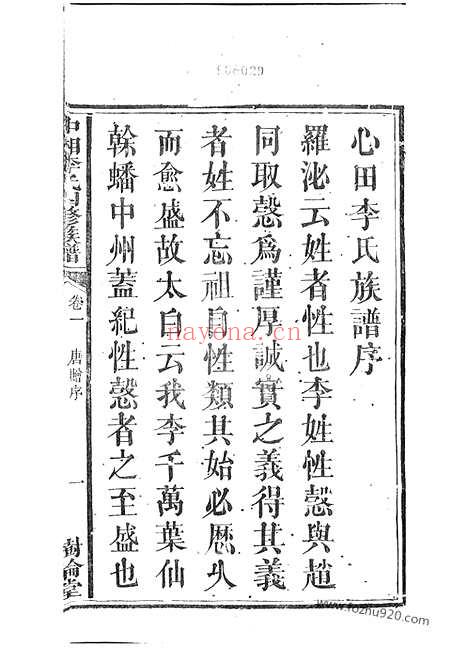 心田李氏族譜序
羅泌云姓者性也李姓性愨與趙
同取愨爲謹厚誠實之義得其義
者姓不忘祖自性類其始必愿久
而愈盛故太白云我李千萬葉仙
榦蟠中州蓋紀性愨者之至盛也
中湘李氏四修族譜
卷一
唐贈序
一
敦倫堂
nayona.cn
zhuofu920.com